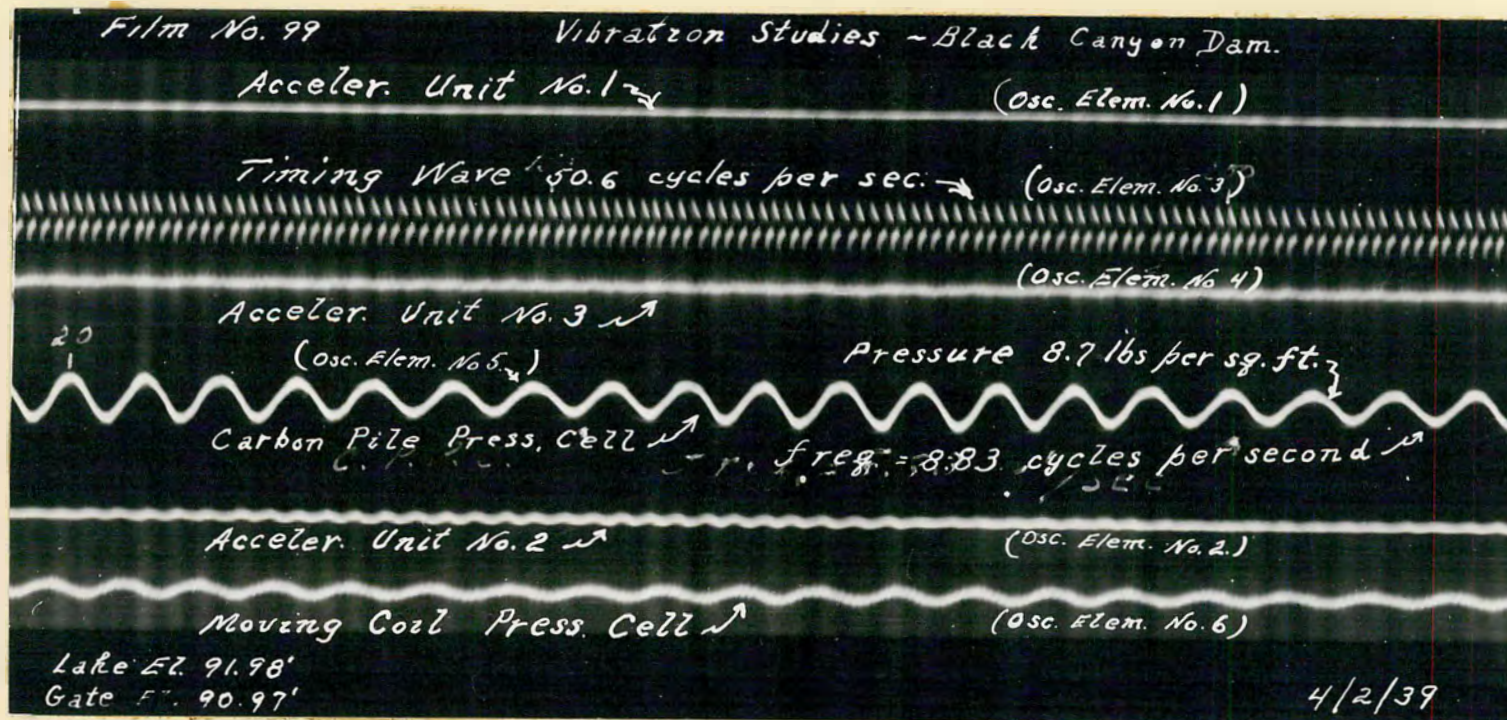 Film No. 99 Vibration Studies - Black Canyon Dam.
Acceler. Unit No. 1 (Osc. Elem. No. 1)
Timing Wave 50.6 cycles per sec. (Osc. Elem. No. 3)
(Osc. Elem. No 4)
Acceler. Unit No. 3
20
(Osc. Elem. No 5.) Pressure 8.7 lbs per sq. ft.
Carbon Pile Press. Cell freq. = 8.83 cycles per second
Acceler. Unit No. 2 (Osc. Elem. No. 2.)
Moving Coil Press. Cell (Osc. Elem. No. 6)
Lake El. 91.98'
Gate El. 90.97'
4/2/39